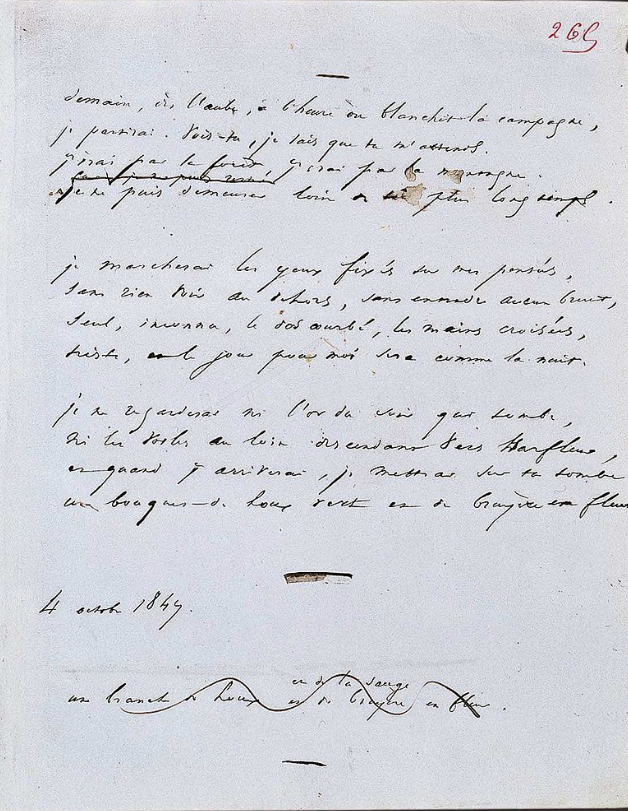 265
demain, dès l'aube, à l'heure où blanchit la campagne,
je partirai. Vois-tu, je sais que tu m'attends.
j'irai par la forêt, j'irai par la montagne.
je ne puis demeurer loin de toi plus longtemps.
je marcherai les yeux fixés sur mes pensées,
sans rien voir au dehors, sans entendre aucun bruit,
seul, inconnu, le dos courbé, les mains croisées,
triste, et le jour pour moi sera comme la nuit.
je ne regarderai ni l'or du soir qui tombe,
ni les voiles au loin descendant vers Harfleur,
et quand j'arriverai, je mettrai sur ta tombe
un bouquet de houx vert et de bruyère en fleur
4 octobre 1847.
et de la sauge
une branche de houx et de bruyère en fleur.